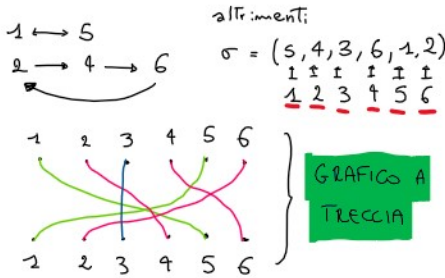 1 ⟷ 5
2 ⟶ 4 ⟶ 6
altrimenti
σ = (5,4,3,6,1,2)
↕ ↕ ↕ ↕ ↕ ↕
1 2 3 4 5 6
1 2 3 4 5 6
1 2 3 4 5 6
GRAFICO A
TRECCIA